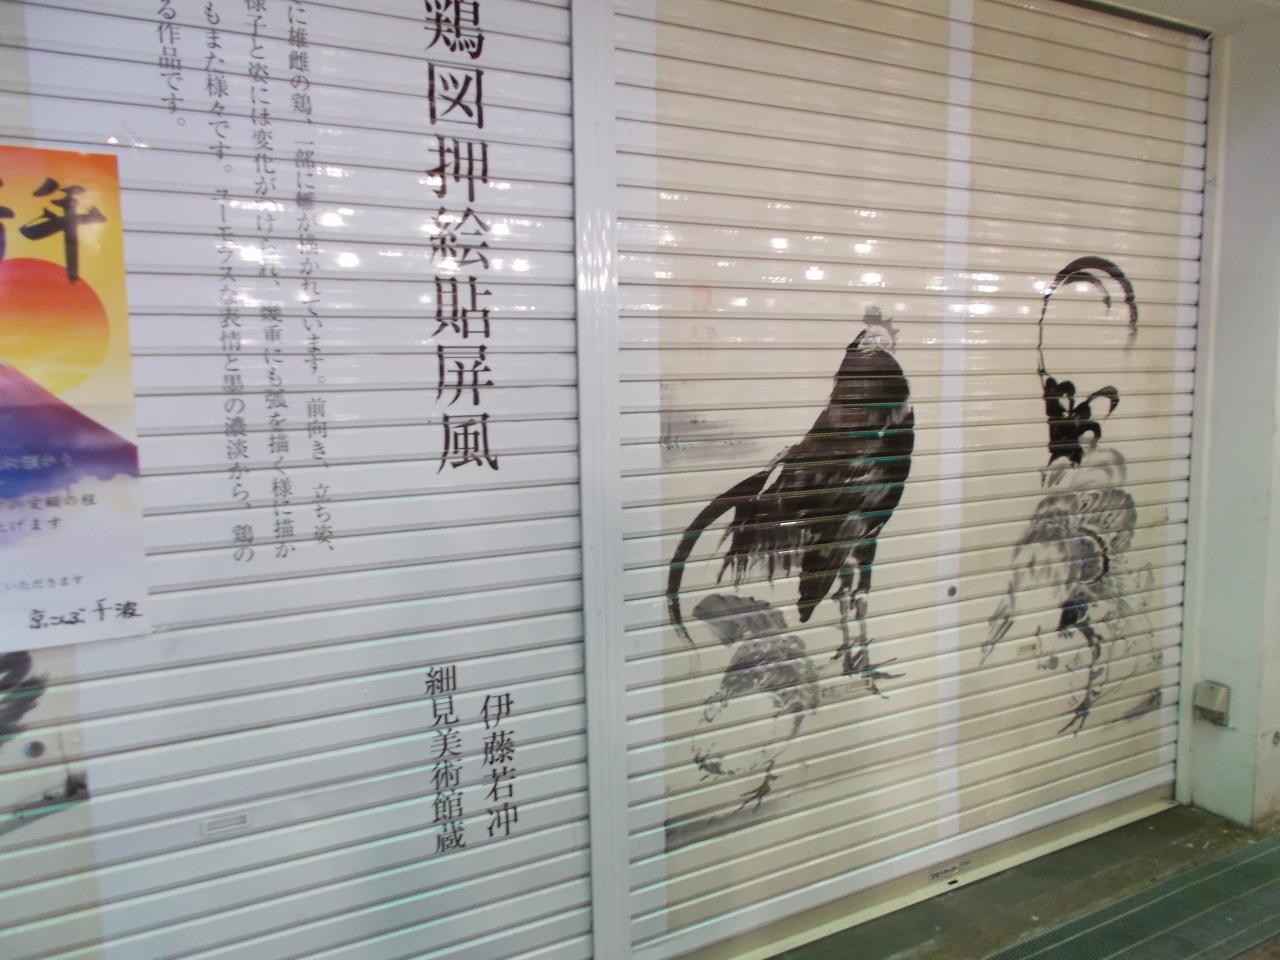 鶏図押絵貼屏風
に雄雌の鶏、一部に雛が描かれています。前向き、立ち姿、
様子と姿には変化がつけられ、幾重にも弧を描く様に描か
もまた様々です。ユーモラスな表情と墨の濃淡から、鶏の
る作品です。
伊藤若冲
細見美術館蔵
年
上げます
ていただきます
京こんぶ 千波